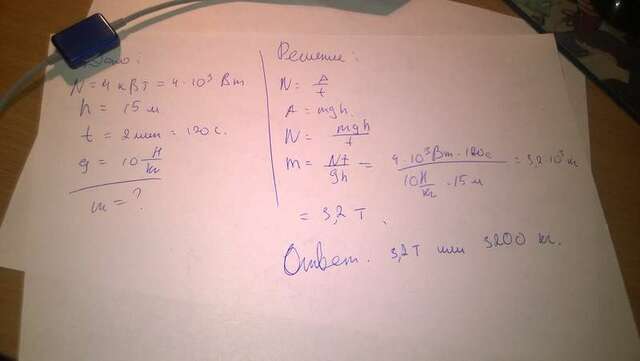 Дано:
N = 4 кВт = 4 · 10³ Вт
h = 15 м
t = 2 мин = 120 с.
g = 10 Н/кг
m = ?
Решение:
N = A/t
A = mgh.
N = mgh/t
m = Nt/gh = 4 · 10³ Вт · 120 с / 10 Н/кг · 15 м = 3,2 · 10³ кг
= 3,2 т.
Ответ. 3,2 т или 3200 кг.